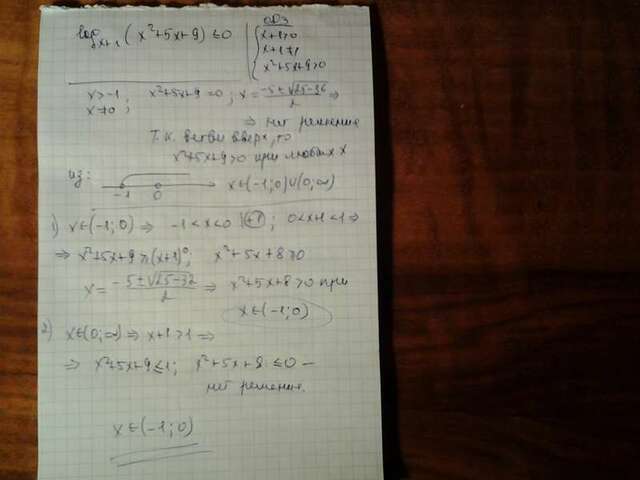 log_{x+1} (x²+5x+9) ≤ 0
ОДЗ
{ x+1>0
x+1≠1
x²+5x+9>0
x>-1, x²+5x+9=0; x = (-5±√25-36)/2 ⇒
x≠0;
⇒ нет решение
т.к. ветви вверх, то
x²+5x+9>0 при любых x
из:
-1 0 x∈(-1;0)∪(0;∞)
1) x∈(-1;0) ⇒ -1<x<0 |+1|; 0<x+1<1 ⇒
⇒ x²+5x+9≥(x+1)⁰; x²+5x+8≥0
x = (-5±√25-32)/2 ⇒ x²+5x+8>0 при
x∈(-1;0)
2) x∈(0;∞) ⇒ x+1>1 ⇒
⇒ x²+5x+9≤1; x²+5x+8≤0 –
нет решение.
x∈(-1;0)